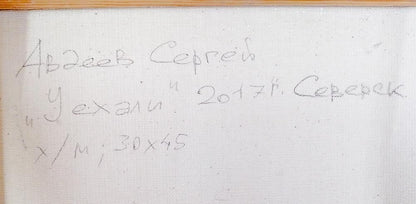 Авдеев Сергей
"Уехали". 2017г. Северск
х/м; 30х45